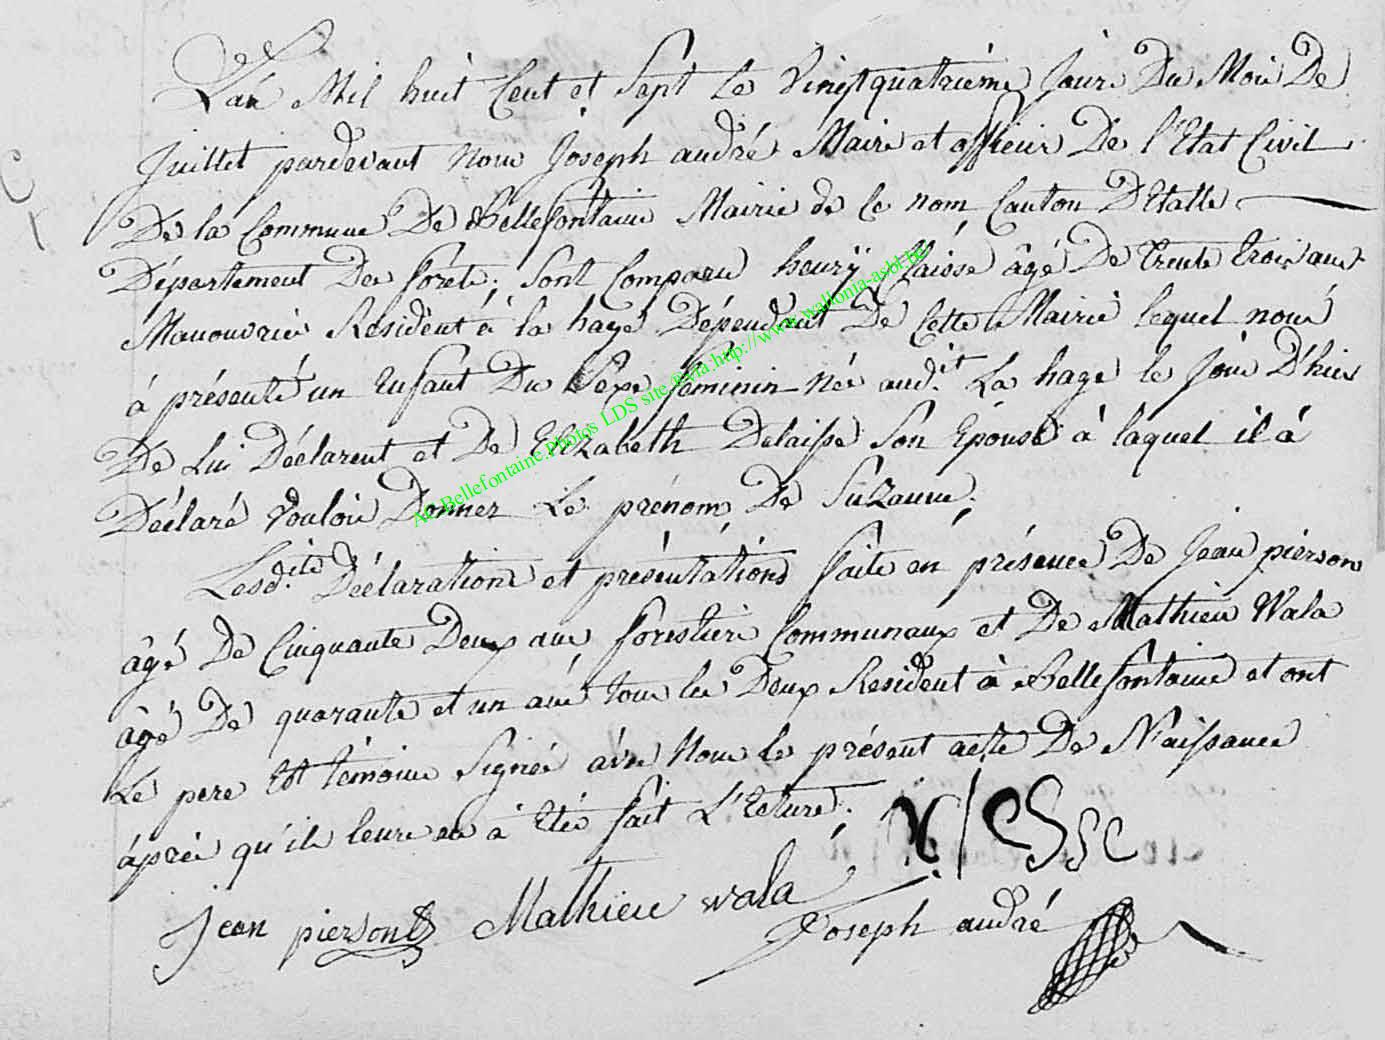 L'an Mil huit Cent et Sept Le Vingtquatriéme Jour Du Mois De
Juillet pardevant Nous Joseph andré Maire et officier De l'Etat Civil
De la Commune De Bellefontaine Mairie de Ce nom Canton D'Etalle
Département Des forêts; Sont Comparu henrÿ Claisse âgé De trente trois ans
Manouvrier Résident à la hage Dépendant De Cette Mairie lequel nous
à présenté un Enfant Du Sexe féminin Née aud.it La hage le Jour D'hier
De Lui Déclarent et De Elizabeth Delaisse Son Epouse à laquel il à
Déclaré vouloir Donner Le prénom De Suzanne.
Lesd.ites Déclaration et présentations faite en présence De Jean pierson
âgé De Cinquante Deux ans forestier Communaux et De Mathieu Wala
âgé De quarante et un ans tous les Deux Resident à Bellefontaine et ont
Le pere Et témoins Signés avec Nous le présent acte De Naissance
áprès qu'il leure en à Eté fait L'Ecture.
jean pierson Mathieu wala Joseph andré
Ac Bellefontaine Photos LDS site @via http://www.wallonia-asbl.be